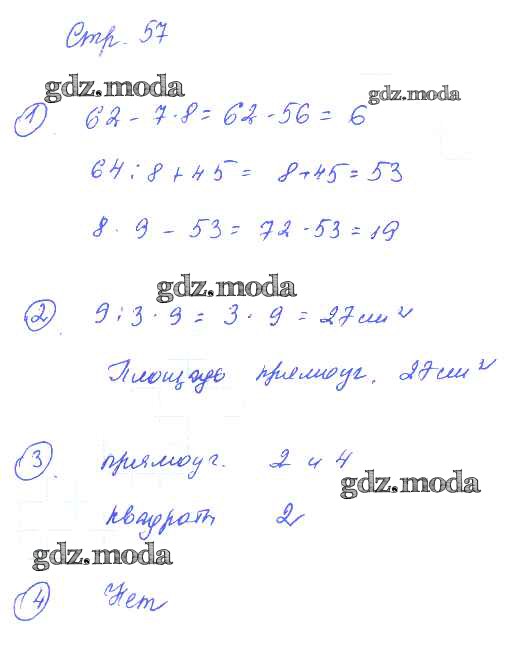 Стр. 57
gdz.moda
gdz.moda
1) 62 - 7·8 = 62 - 56 = 6
64 : 8 + 45 = 8 + 45 = 53
8 · 9 - 53 = 72 - 53 = 19
gdz.moda
2). 9 : 3 · 9 = 3 · 9 = 27 см²
Площадь прямоуг. 27 см²
3). прямоуг. 2 и 4
gdz.moda
квадраты 2
gdz.moda
4) Нет